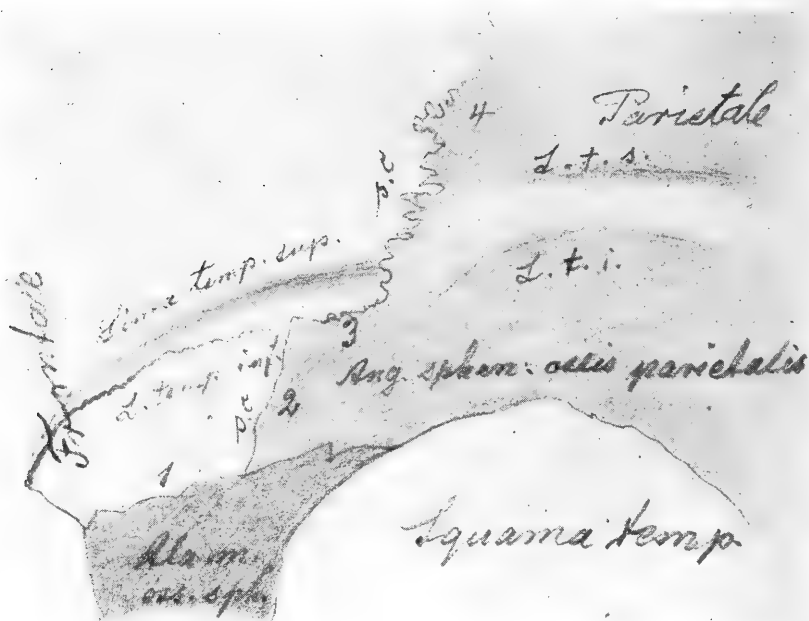 4
Parietale
L. t. s.
s. c
Linea temp. sup.
L. t. i.
Frontale
3
L. temp. inf.
Ang. sphen. ossis parietalis
s. c
2
1
Squama temp.
Ala m.
oss. sph.